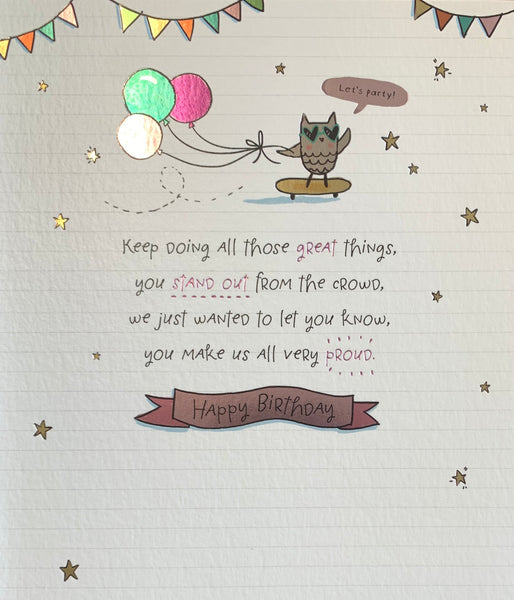 Let's party!
Keep doing all those great things,
you stand out from the crowd,
we just wanted to let you know,
you make us all very proud.
Happy Birthday